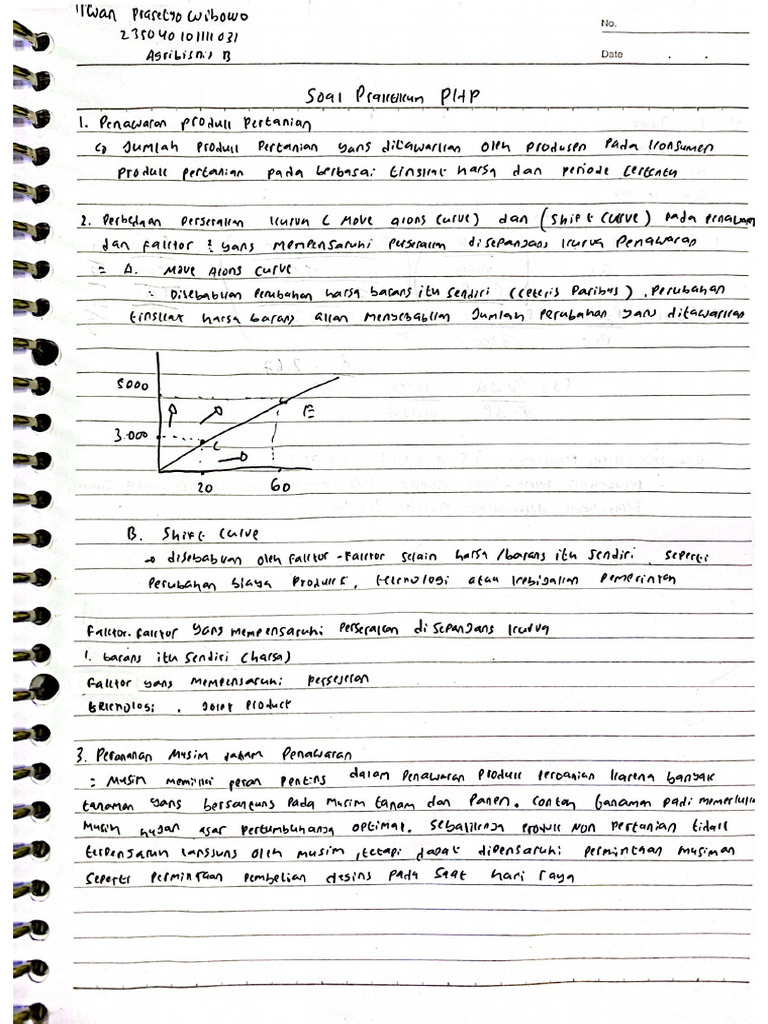 Prasetyo Wibowo
235040101111031
Agribisnis B
No.
Date
Soal Praktikum PHP
1. Penawaran produk Pertanian
Jumlah Produk Pertanian yang ditawarkan oleh produsen pada konsumen
produk pertanian pada berbagai tingkat harga dan periode tertentu
2. Perbedaan Pergerakan kurva (Move along curve) dan (Shift curve) pada Penawaran
dan faktor ? yang mempengaruhi pergerakan disepanjang kurva Penawaran
= A. Move Along Curve
: Disebabkan Perubahan harga barang itu sendiri (ceteris Paribus). Perubahan
tingkat harga barang akan menyebabkan Jumlah Perubahan yang ditawarkan
5000
E
3.000
C
20 60
B. Shift Curve
→ disebabkan oleh faktor-faktor selain harga/barang itu sendiri, seperti
Perubahan biaya Produksi, teknologi atau kebijakan Pemerintah
Faktor-faktor yang mempengaruhi pergerakan disepanjang kurva
1. barang itu sendiri (harga)
Faktor yang mempengaruhi pergeseran
teknologi, Joint Product
3. Peranan Musim dalam Penawaran
= Musim memiliki peran Penting dalam Penawaran Produk pertanian karena banyak
tanaman yang bergantung pada musim tanam dan Panen. Contoh tanaman padi memerlukan
Musim hujan agar Pertumbuhannya optimal. Sebaliknya Produk Non Pertanian tidak
terpengaruh langsung oleh musim, tetapi dapat dipengaruhi permintaan musiman
seperti Permintaan pembelian daging pada saat hari raya